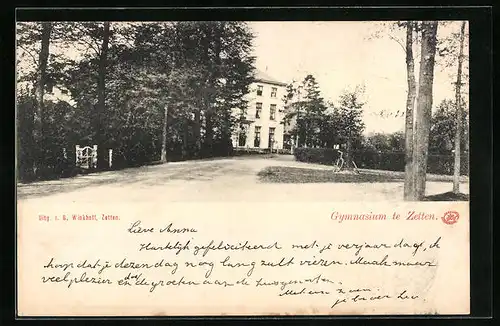 Uitg. v. G. Winkhoff, Zetten.
Gymnasium te Zetten.
Lieve Anna
Hartelijk gefeliciteerd met je verjaardag, ik
hoop dat je dezen dag nog lang zult vieren. Maak maar
veel plezier en doe de groeten aan de huisgenooten.
Met een
je